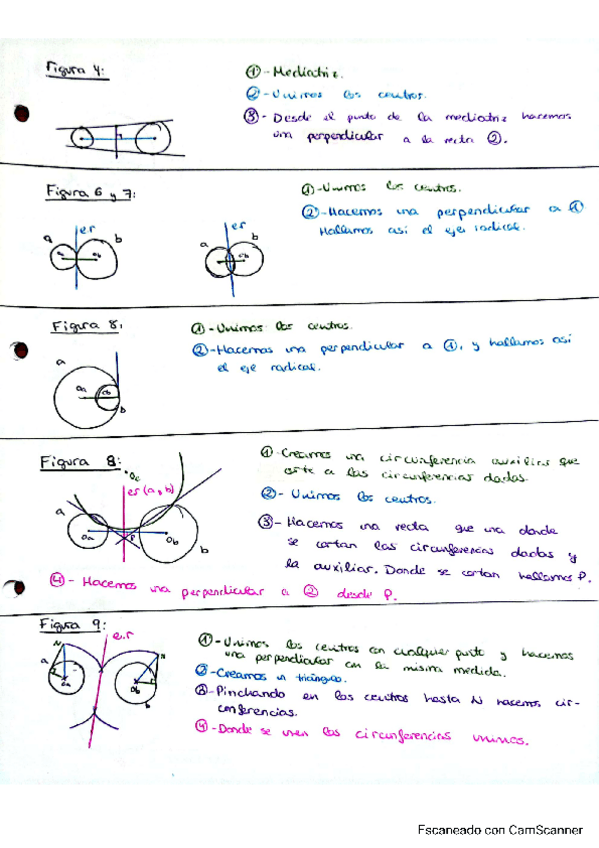 Figura 4:
①- Mediatriz.
②- Unimos los centros.
③- Desde el punto de la mediatriz hacemos
una perpendicular a la recta ②.
Figura 6 y 7:
①- Unimos los centros.
②- Hacemos una perpendicular a ①
Hallamos así el eje radical.
er
a
b
er
a
b
Figura 8:
①- Unimos los centros.
②- Hacemos una perpendicular a ①, y hallamos así
el eje radical.
a
Oa
Ob
b
Figura 8:
①- Creamos una circunferencia auxiliar que
corte a las circunferencias dadas.
②- Unimos los centros.
③- Hacemos una recta que una donde
se cortan las circunferencias dadas y
la auxiliar. Donde se cortan hallamos P.
④- Hacemos una perpendicular a ② desde P.
Oc
er (a, b)
a
Oa
P
Ob
b
Figura 9:
①- Unimos los centros con cualquier punto y hacemos
una perpendicular con la misma medida.
②- Creamos un triángulo.
③- Pinchando en los centros hasta N hacemos cir-
conferencias.
④- Donde se unen las circunferencias unimos.
e.r
N
N
a
Oa
Ob
b
Escaneado con CamScanner